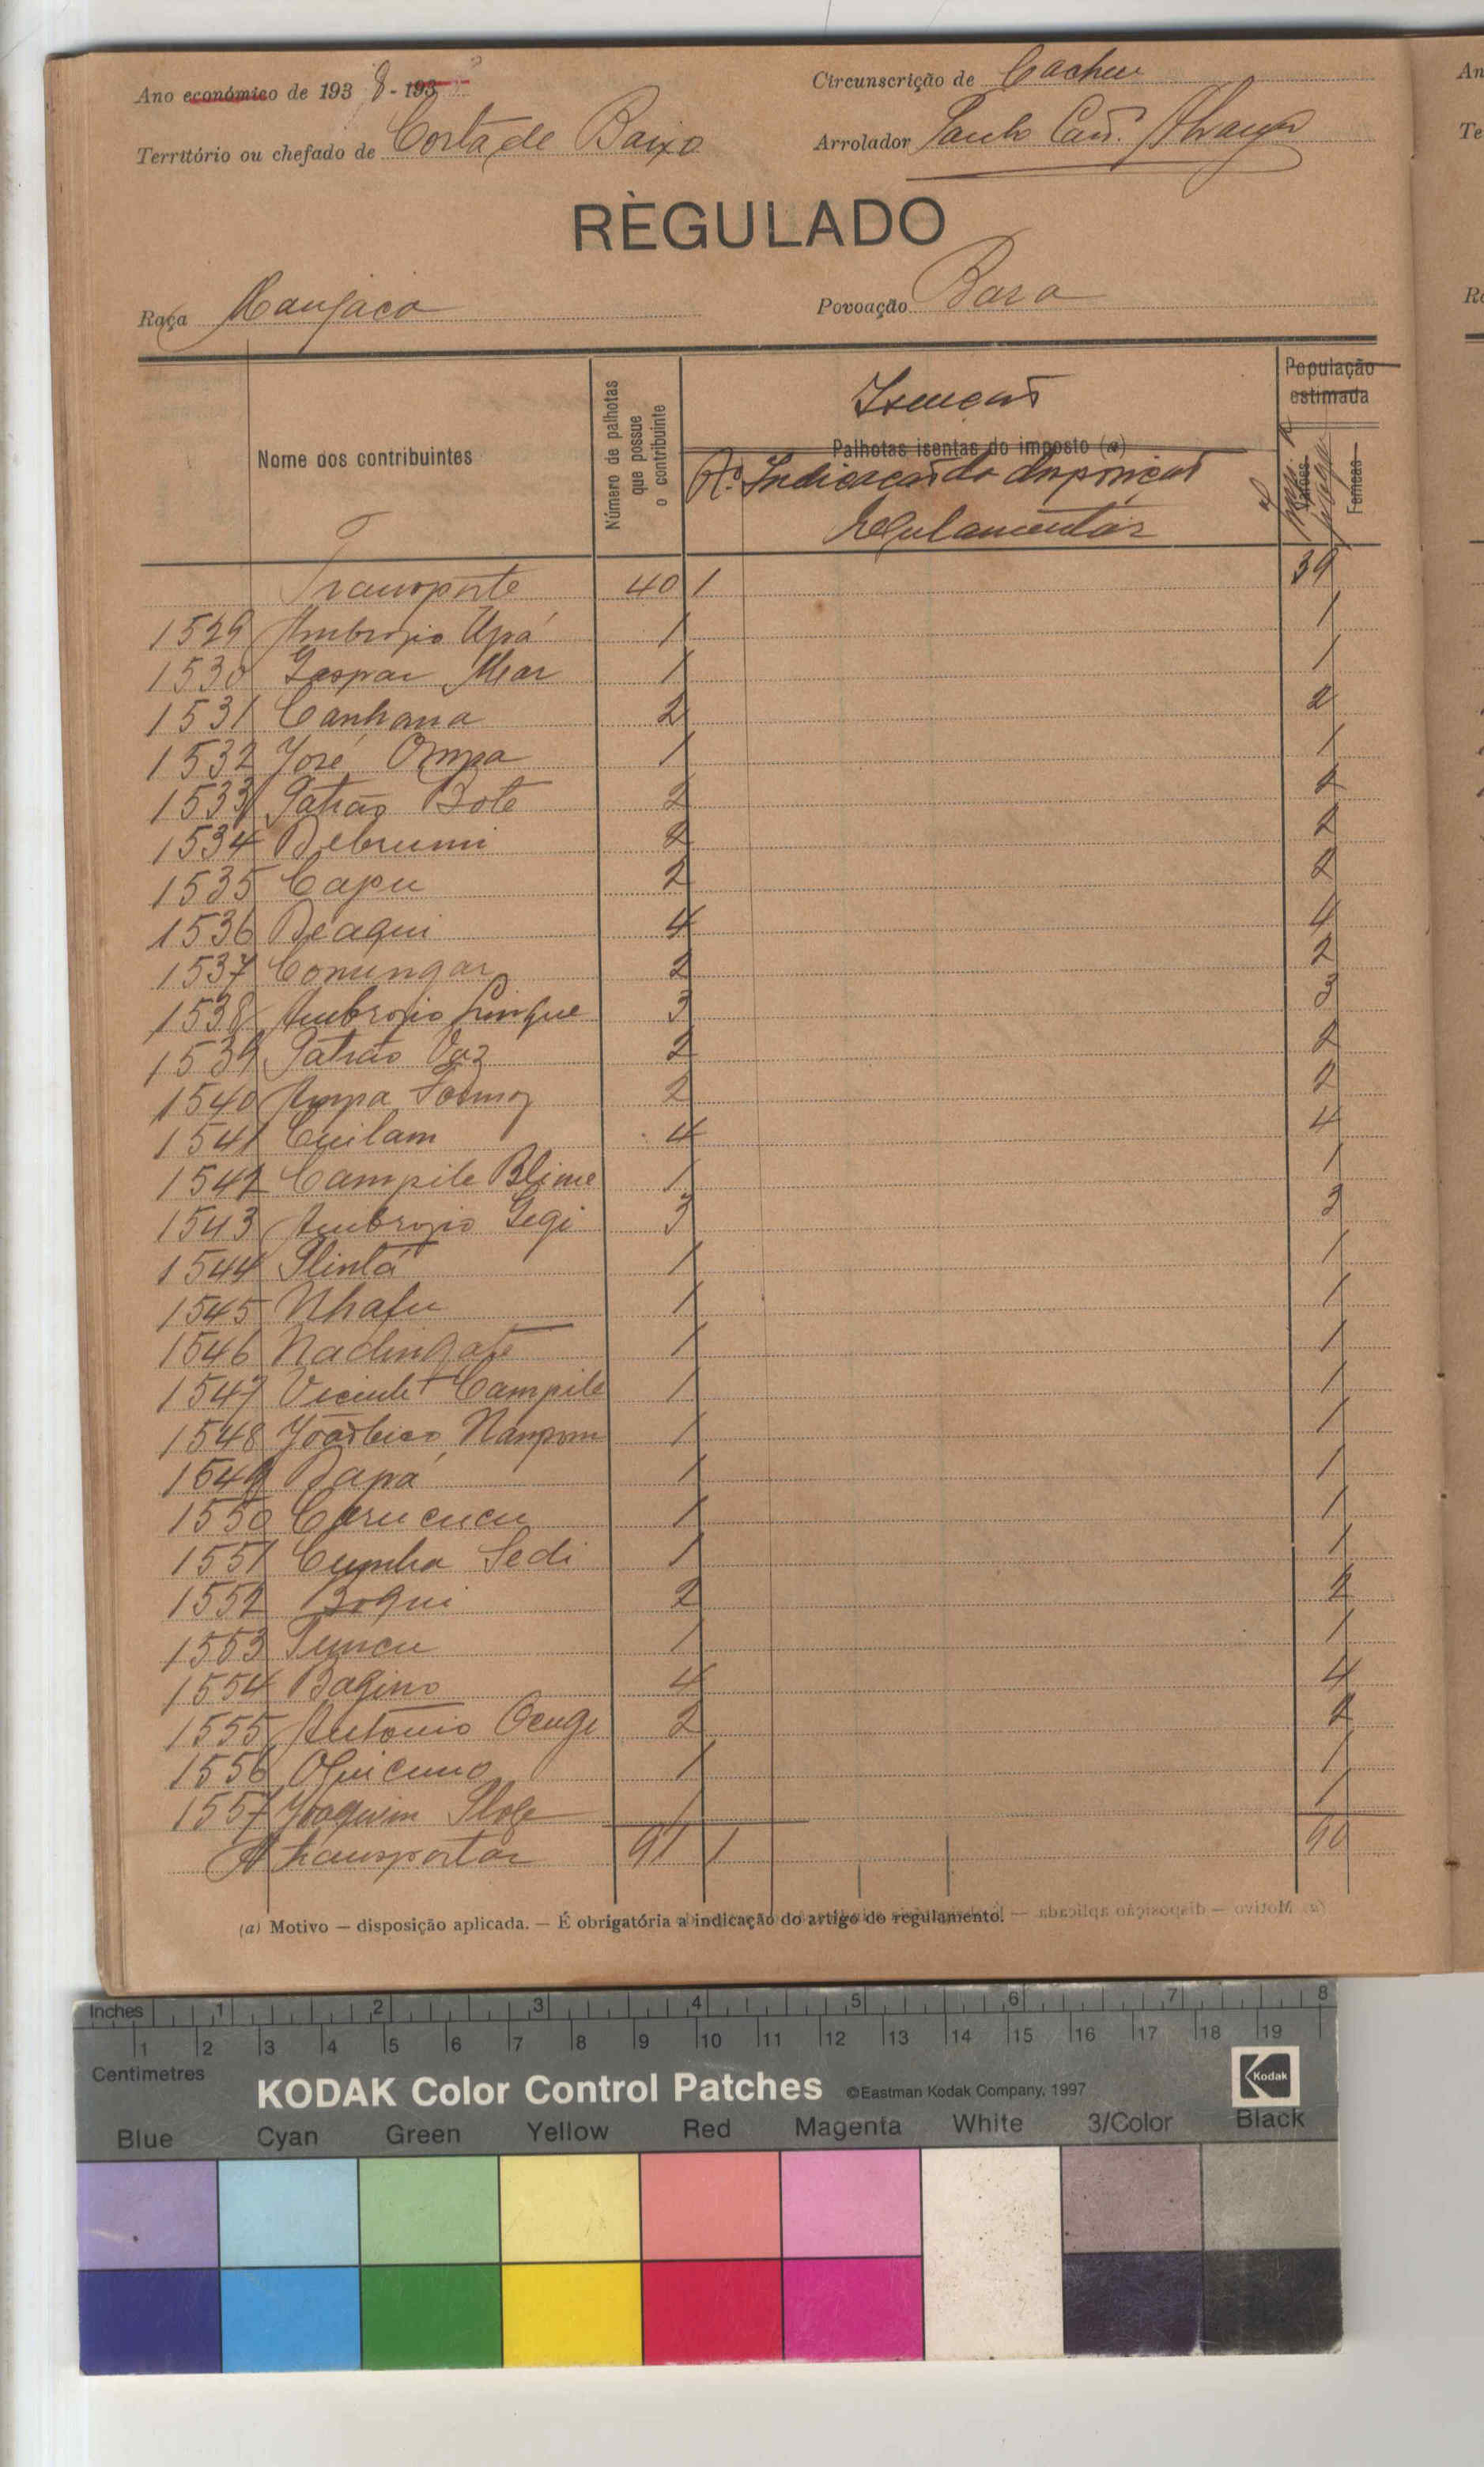 Ano económico de 1938-193
Circunscrição de Cacheu
Território ou chefado de Costa de Baixo
Arrolador Paulo
RÈGULADO
Raça Manjaca
Povoação Bara
Nome dos contribuintes
Número de palhotas que possue o contribuinte
Isenções
Palhotas isentas do imposto (a)
N.º Indicação da disposição
regulamentar
População estimada
Femeas
Transporte 40 1 39
1529 Ambrozio Upá 1 1
1530 Gaspar Mear 1 1
1531 Canhana 2 2
1532 José Ompa 1 1
1533 Patrão Bote 2 2
1534 Debrumi 2 2
1535 Capu 2 2
1536 Deaqui 4 4
1537 Conungar 2 2
1538 Ambrozio 3 3
1539 Patrão Vaz 2 2
1540 Ampa 2 2
1541 Cuilam 4 4
1542 Campile Blime 1 1
1543 Ambrozio Gegi 3 3
1544 Plintá 1 1
1545 Nhafu 1 1
1546 Nadingate 1 1
1547 Vicente Campile 1 1
1548 Nampom 1 1
1549 Dapá 1 1
1550 Carucucu 1 1
1551 Cumba Sedi 1 1
1552 Boqui 2 2
1553 1 1
1554 Bagino 4 4
1555 António Ocugi 2 2
1556 Oquicuno 1 1
1557 Joaquim 1 1
A transportar 91 1 90
(a) Motivo — disposição aplicada. — É obrigatória a indicação do artigo do regulamento.
Inches 1 2 3 4 5 6 7 8
1 2 3 4 5 6 7 8 9 10 11 12 13 14 15 16 17 18 19
Centimetres
KODAK Color Control Patches ©Eastman Kodak Company, 1997 Kodak
Blue Cyan Green Yellow Red Magenta White 3/Color Black